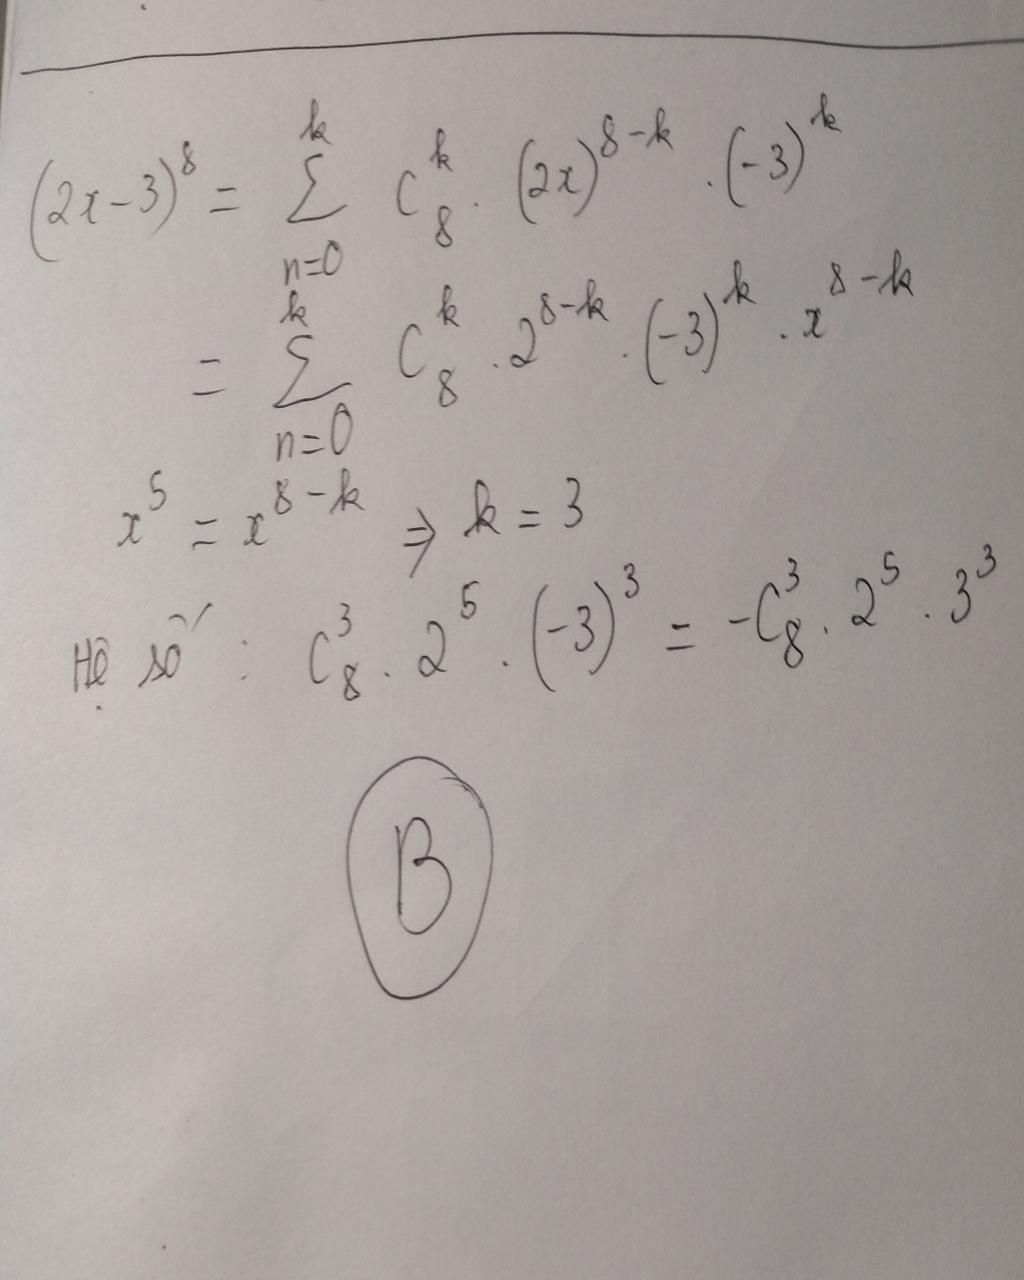 (2x-3)^8 = \sum_{n=0}^{k} C_8^k . (2x)^{8-k} . (-3)^k
= \sum_{n=0}^{k} C_8^k . 2^{8-k} . (-3)^k . x^{8-k}
x^5 = x^{8-k} ⇒ k = 3
Hệ số : C_8^3 . 2^5 . (-3)^3 = -C_8^3 . 2^5 . 3^3
B